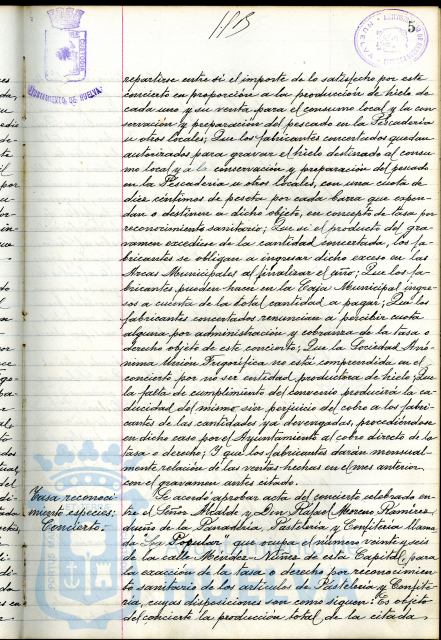 5
AYUNTAMIENTO DE HUELVA
repartirse entre sí el importe de lo satisfecho por este
concierto en proporción a la producción de hielo de
cada uno y su venta para el consumo local y la con-
servación y preparación del pescado en la Pescadería
u otros locales; Que los fabricantes concertados quedan
autorizados para gravar el hielo destinado al consu-
mo local y a la conservación y preparación del pescado
en la Pescadería u otros locales, con una cuota de
diez céntimos de peseta por cada barra que expen-
dan o destinen a dicho objeto, en concepto de tasa por
reconocimiento sanitario; Que si el producto del gra-
vamen excediese de la cantidad concertada, los fa-
bricantes se obligan a ingresar dicho exceso en las
Arcas Municipales al finalizar el año; Que los fa-
bricantes pueden hacer en la Caja Municipal ingre-
sos a cuenta de la total cantidad a pagar; Que los
fabricantes concertados renuncian a percibir cuota
alguna por administración y cobranza de la tasa o
derecho objeto de este concierto; Que la Sociedad Anó-
nima Unión Frigorífica no está comprendida en el
concierto por no ser entidad productora de hielo; Que
la falta de cumplimiento del convenio producirá la ca-
ducidad del mismo sin perjuicio del cobro a los fabri-
cantes de las cantidades ya devengadas, procediéndose
en dicho caso por el Ayuntamiento al cobro directo de la
tasa o derecho; Y que los fabricantes darán mensual-
mente relación de las ventas hechas en el mes anterior
con el gravamen antes citado.
Tasa reconoci-
miento especies:
Concierto.-
Se acordó aprobar acta del concierto celebrado en-
tre el Señor Alcalde y Don Rafael Moreno Ramírez
dueño de la Panadería, Pastelería y Confitería llama-
da "La Popular", que ocupa el número veinte y seis
de la calle Méndez-Núñez de esta Capital, para
la exacción de la tasa o derecho por reconocimien-
to sanitario de los artículos de Pastelería y Confite-
ría, cuyas disposiciones son como siguen: Es objeto
del concierto la producción total de la citada